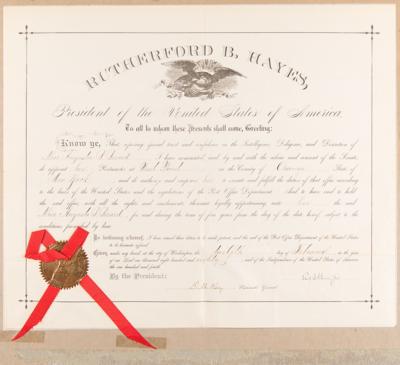 RUTHERFORD B. HAYES,
President of the United States of America,
To all to whom these Presents shall come, Greeting:
Know ye, That reposing special trust and confidence in the Intelligence, Diligence, and Discretion of
Miss Augusta I have nominated, and by and with the advice and consent of the Senate,
do appoint her Postmaster at in the County of State of
New York, and do authorize and empower her to execute and fulfill the duties of that office according
to the laws of the United States and the regulations of the Post Office Department: And to have and to hold
the said office, with all the rights and emoluments thereunto legally appertaining unto her the said
Miss Augusta for and during the term of four years from the day of the date hereof, subject to the
conditions prescribed by law
In testimony whereof, I have caused these letters to be made patent, and the seal of the Post Office Department of the United States
to be hereunto affixed.
Given under my hand, at the city of Washington, the twelfth day of in the year
of our Lord one thousand eight hundred and eighty, and of the Independence of the United States of America
the one hundred and fourth.
By the President: R B Hayes
D. M. Key Postmaster General